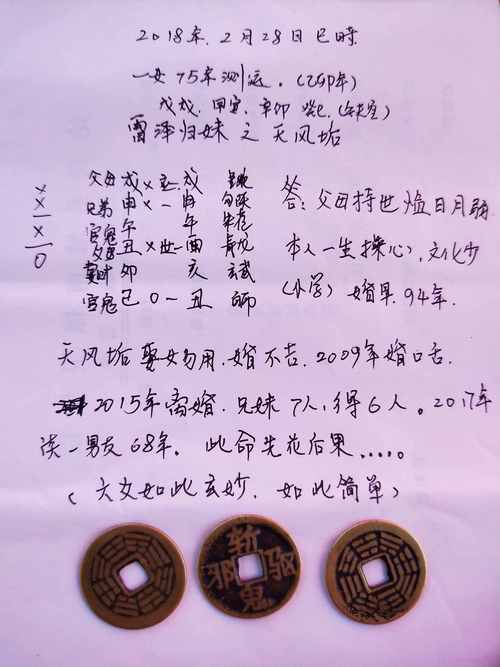 2018年.2月28日巳时
一女75年测运.(乙卯年)
戊戌.甲寅.辛卯 癸巳.
雷泽归妹之天风垢
父母戌 x 戌
x 兄弟申 x 一申 勾陈
x 官鬼午 午 朱雀
一 父母丑 x 世一酉 青龙
x 妻财卯 亥 玄武
0 官鬼巳 0 一丑
答:父母持世 日月弱
本人一生操心,文化少
(小学) 婚早.94年.
天风垢 娶女勿用.婚不吉.2009年婚口舌.
2015年离婚.兄妹7人,得6人。2017年
谈一男友68年. 此命先花后果.....
(六爻如此玄妙.如此简单)
斩
邪 驱
鬼